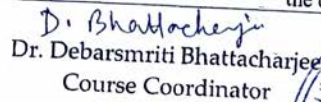 D. Bhattacharjee
Dr. Debarsmriti Bhattacharjee
Course Coordinator